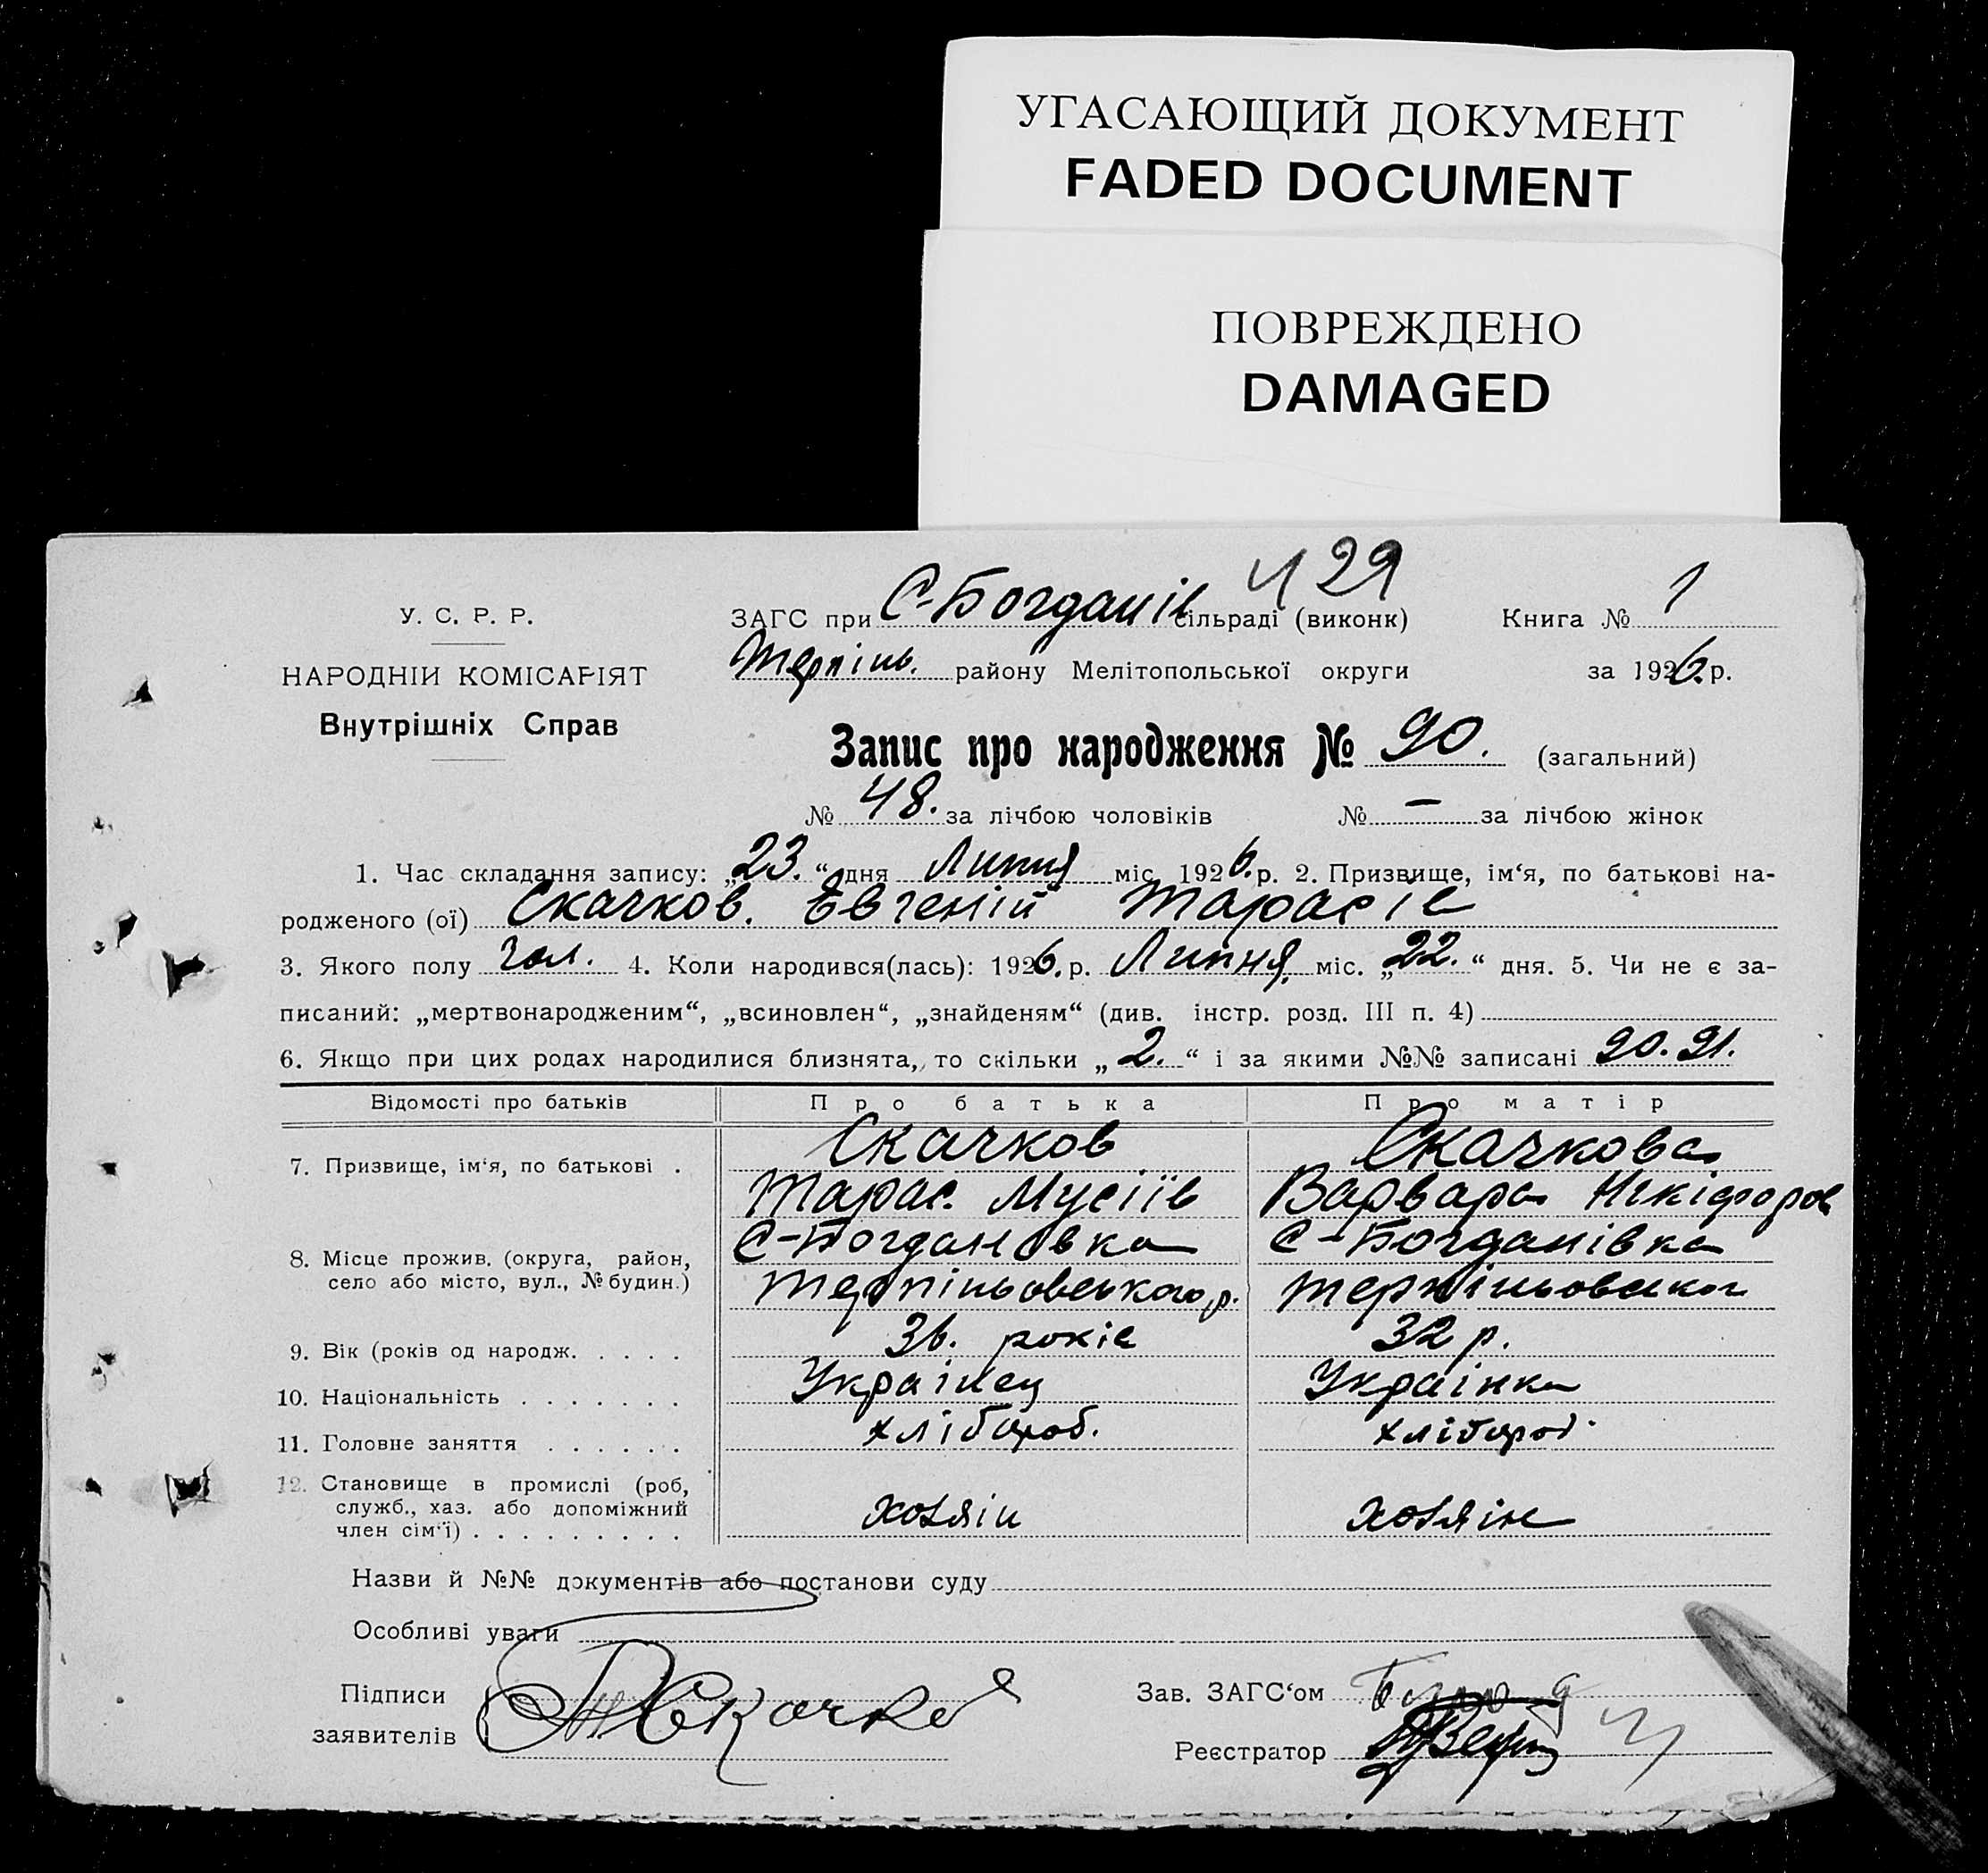 УГАСАЮЩИЙ ДОКУМЕНТ
FADED DOCUMENT
ПОВРЕЖДЕНО
DAMAGED
429
У. С. Р. Р.
НАРОДНІЙ КОМІСАРІЯТ
Внутрішніх Справ
ЗАГС при С-Богданів сільраді (виконк) Книга № 1
Терпінь. району Мелітопольської округи за 1926.р.
Запис про народження № 90. (загальний)
№ 48. за лічбою чоловіків № — за лічбою жінок
1. Час складання запису: „23.“ дня Липня міс. 1926.р. 2. Призвище, ім‘я, по батькові на-
родженого (ої) Скачков. Евгеній Тарасів
3. Якого полу чол. 4. Коли народився(лась): 1926.р. Липня міс. „22.“ дня. 5. Чи не є за-
писаний: „мертвонародженим“, „всиновлен“, „знайденям“ (див. інстр. розд. III п. 4)
6. Якщо при цих родах народилися близнята, то скільки „2.“ і за якими №№ записані 90. 91.
Відомості про батьків Про батька Про матір
7. Призвище, ім‘я, по батькові . Скачков Скачкова
Тарас. Мусіїв Варвара Нікіфоров
8. Місце прожив. (округа, район, село або місто, вул., № будин.) С-Богдановка С-Богданівка
Терпіньовського р. Терпіньовськог
9. Вік (років од народж. . . . . 36. років 32 р.
10. Національність . . . . . . . Украінец Украінка
11. Головне заняття . . . . . . хлібороб. хлібороб.
12. Становище в промислі (роб, служб., хаз. або допоміжний член сім‘ї) . . . . . . . . . хозяін хозяін
Назви й №№ документів або постанови суду
Особливі уваги
Підписи заявителів Скачков
Зав. ЗАГС‘ом
Реєстратор